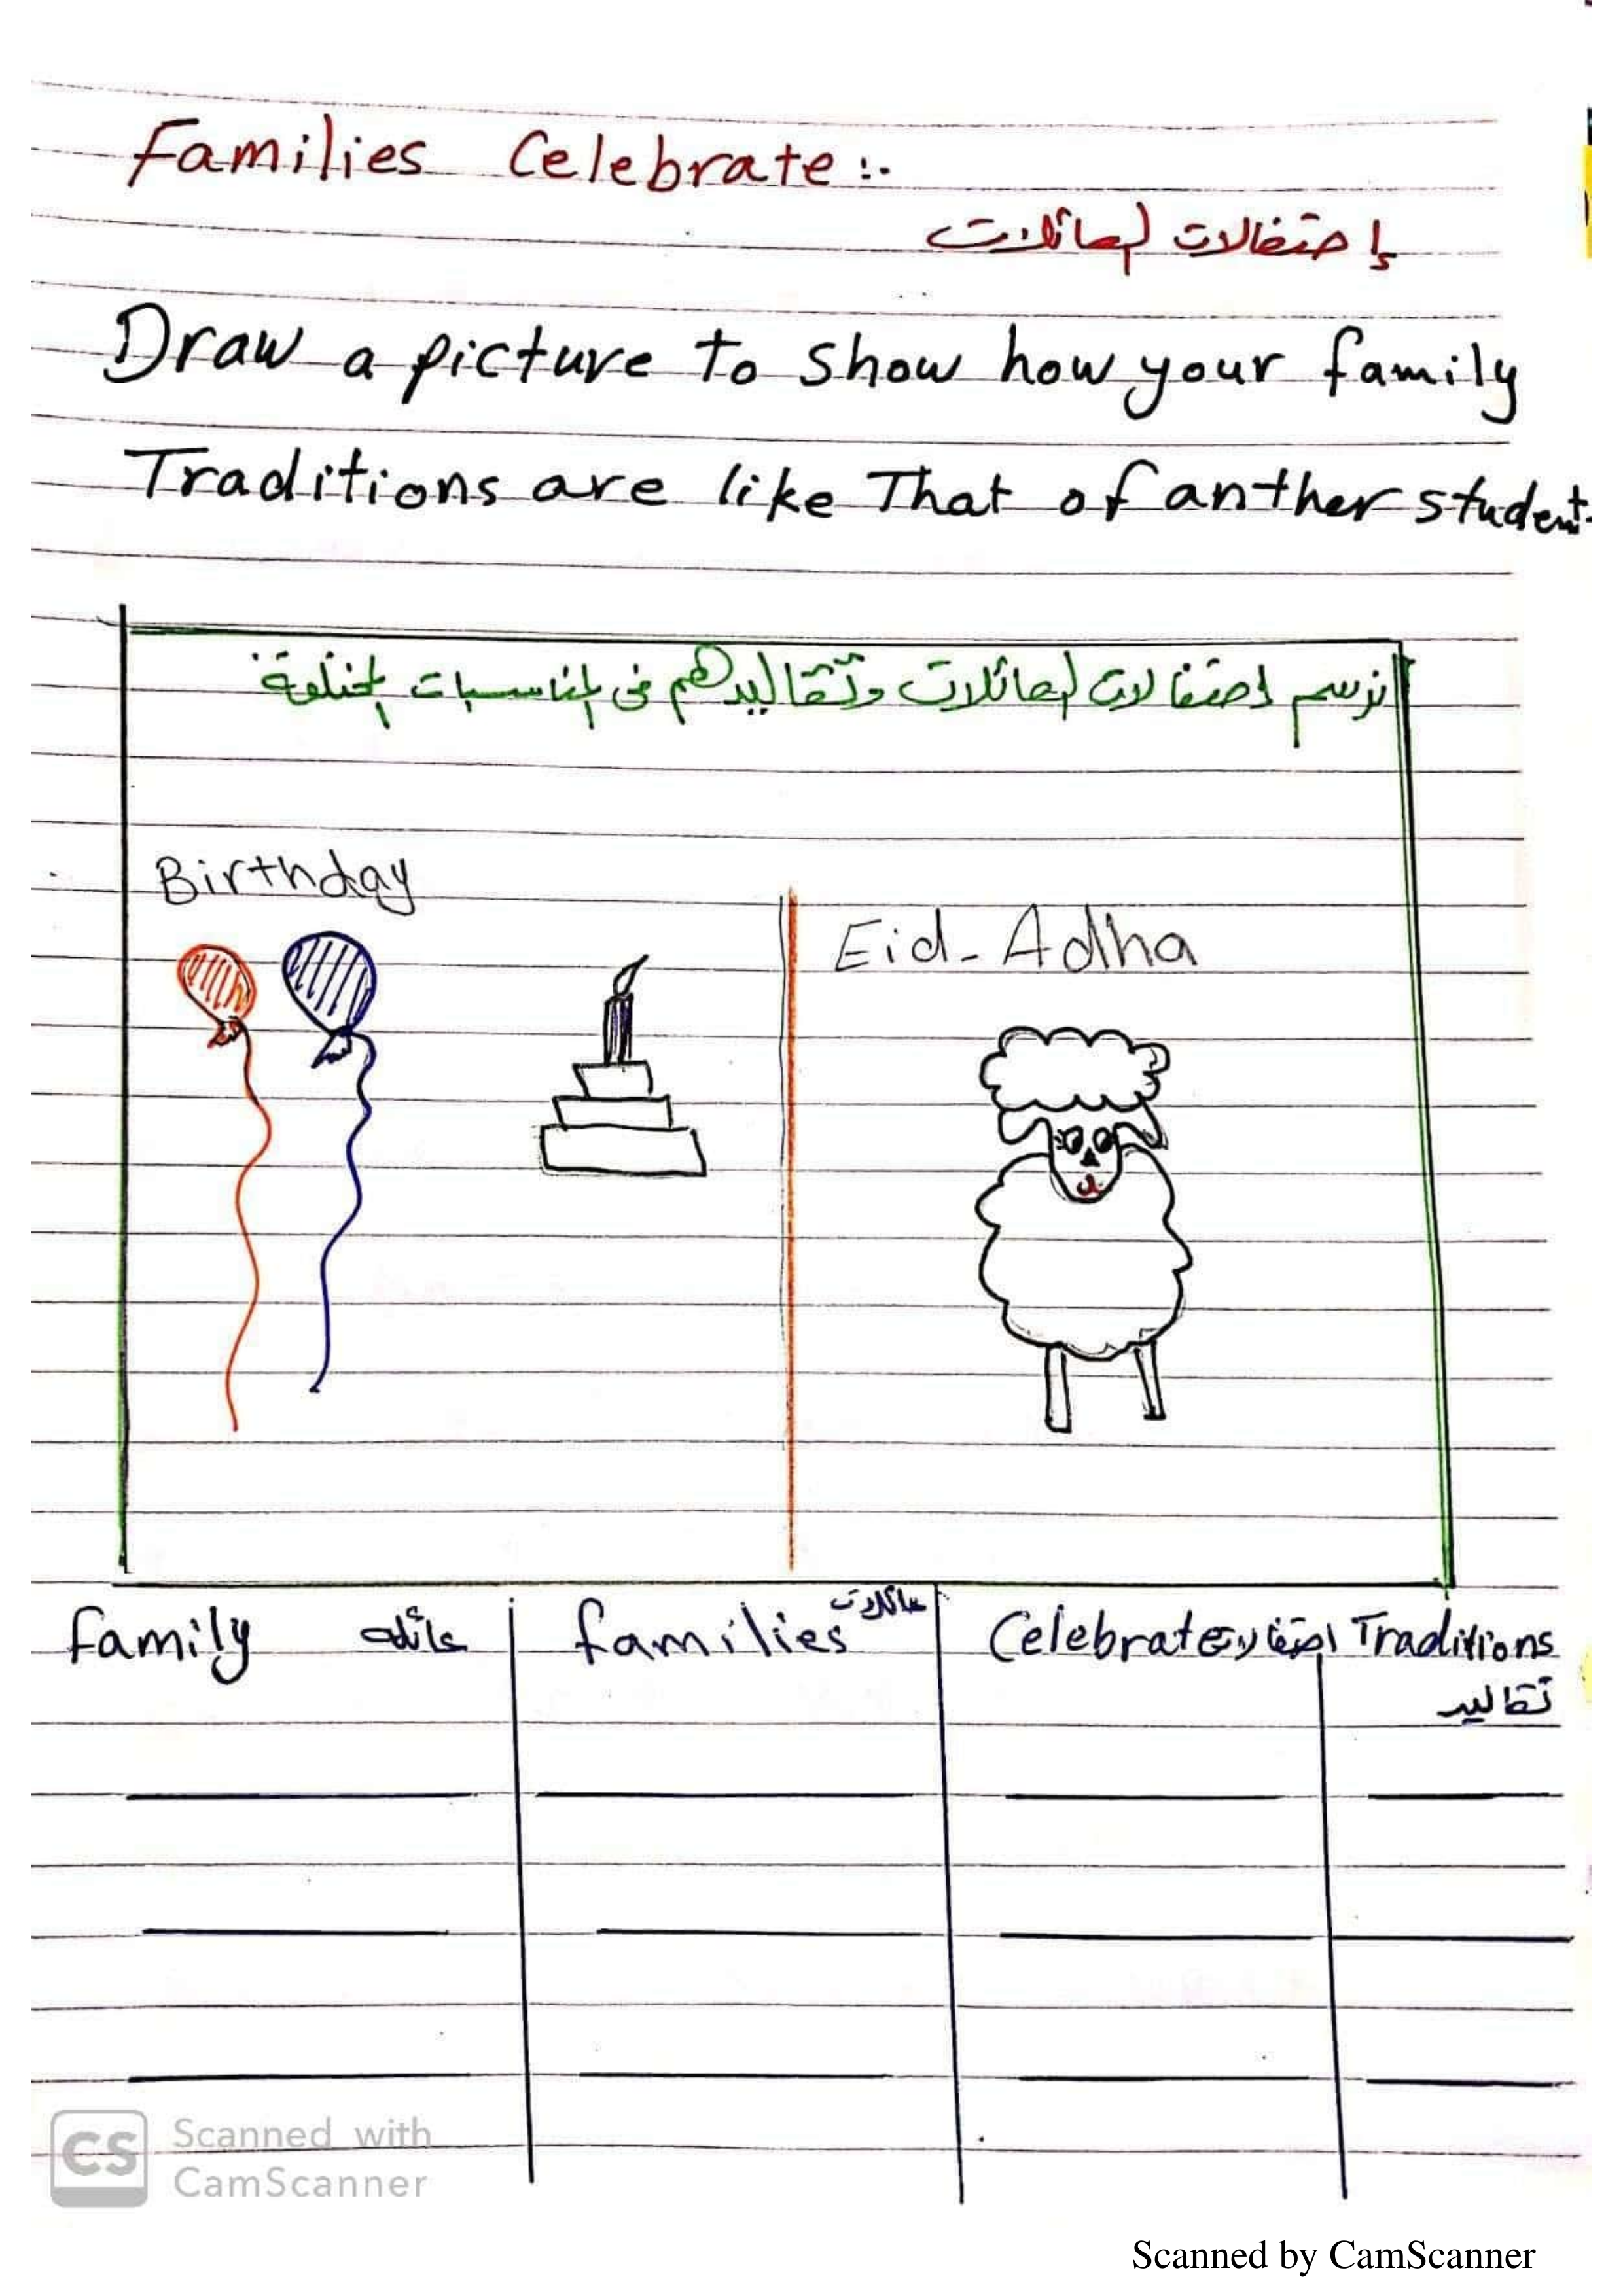 Families Celebrate :.
إحتفالات العائلات
Draw a picture to show how your family
Traditions are like That of anther student.
نرسم إحتفالات العائلات وتقاليدهم فى المناسبات المختلفة.
Birthday
Eid-Adha
family عائله families عائلات Celebrate احتفالات Traditions
تقاليد
CS Scanned with
CamScanner
Scanned by CamScanner